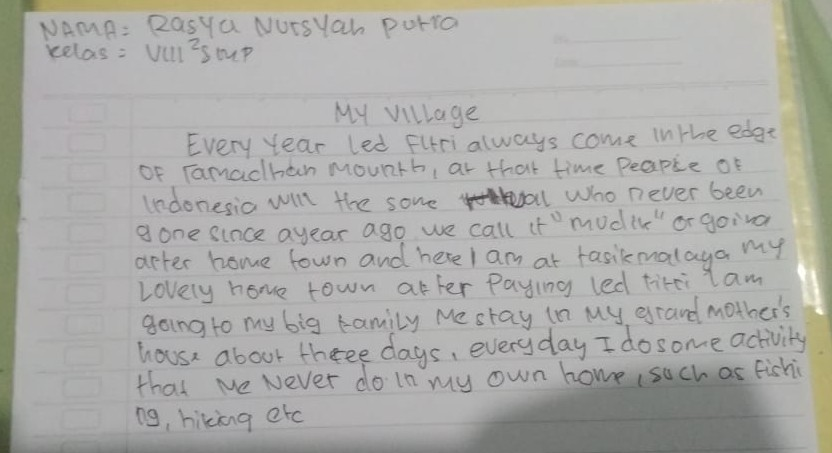 NAMA: Rasya Nursyah Putra
Kelas: VIII² Smp
My Village
Every Year Led Fitri always come in the edge
OF ramadhan mounth, at that time People of
Indonesia will the some who never been
gone since a year ago we call it "mudik" or going
after home town and here I am at tasikmalaya my
Lovely home town after Paying led fitri I am
going to my big family me stay in my grand mother's
house about three days, everyday I do some activity
that me Never do in my own home, such as fishi
ng, hiking etc